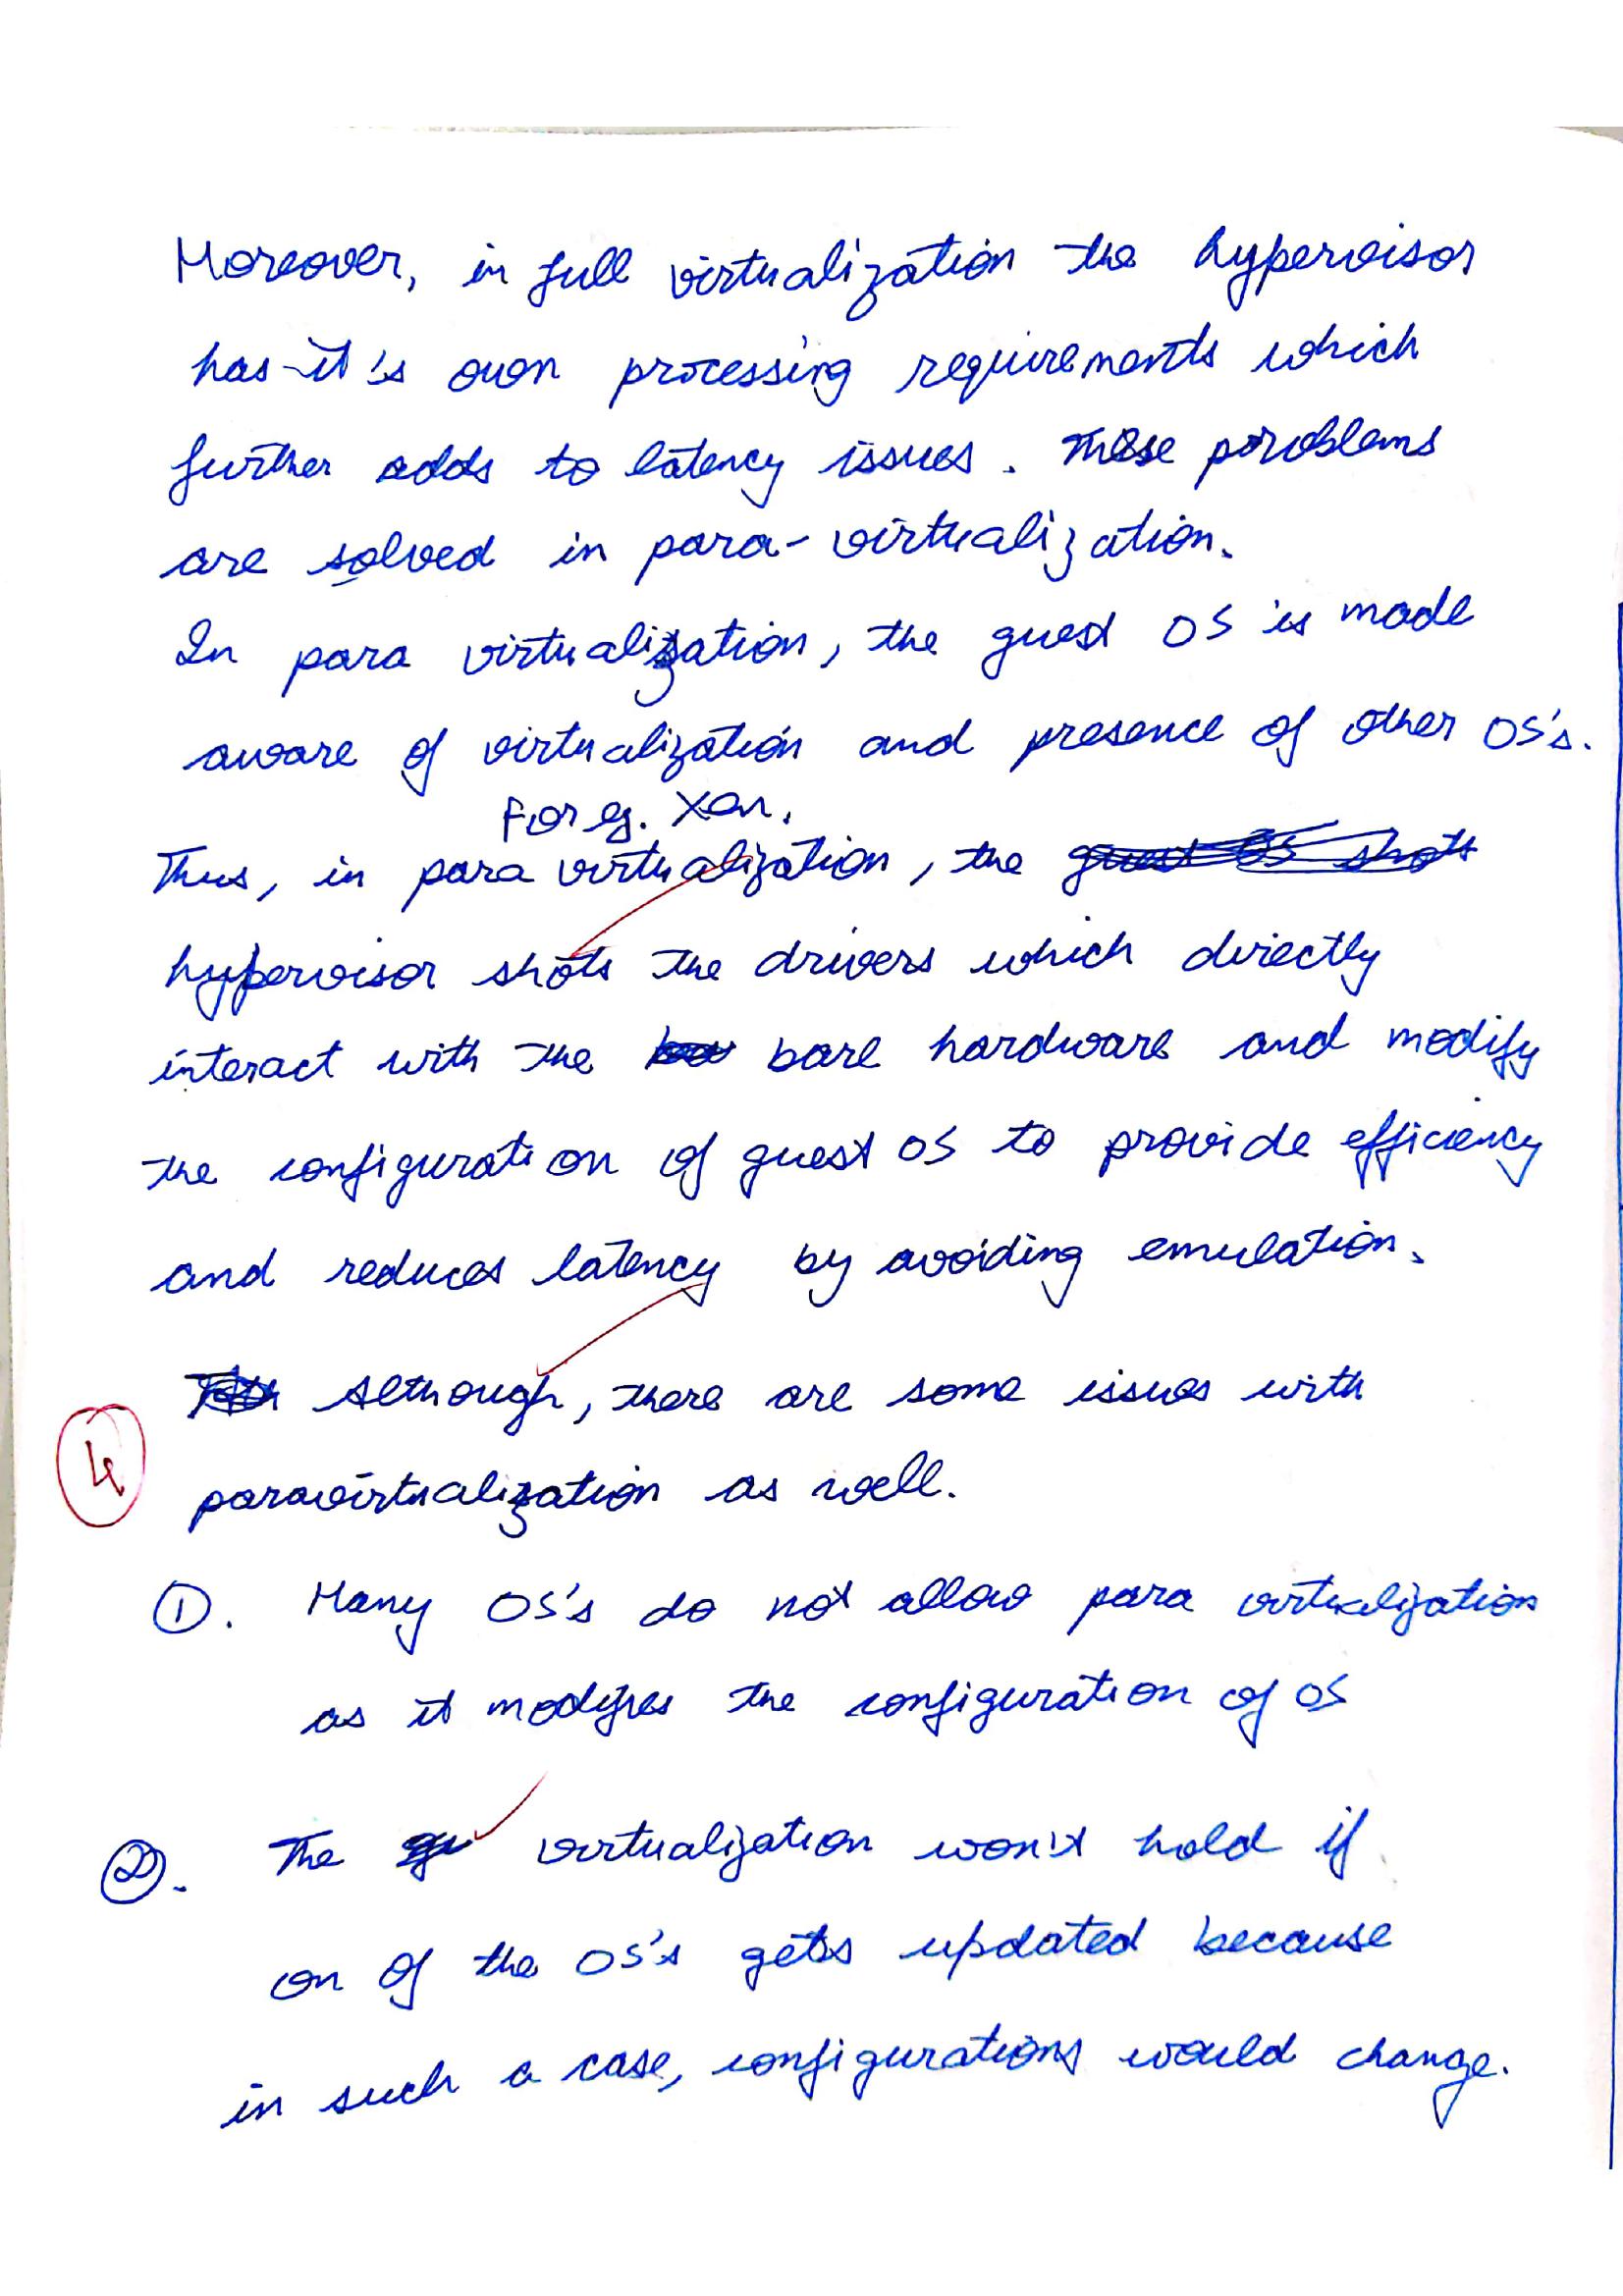 Moreover, in full virtualization the hypervisor
has it's own processing requirements which
further adds to latency issues. These problems
are solved in para-virtualization.
In para virtualization, the guest OS is made
aware of virtualization and presence of other OS's.
For eg. Xen.
Thus, in para virtualization, the guest OS shots
hypervisor shots the drivers which directly
interact with the bare hardware and modify
the configuration of guest OS to provide efficiency
and reduces latency by avoiding emulation.
Although, there are some issues with
4
paravirtualization as well.
①. Many OS's do not allow para virtualization
as it modifies the configuration of OS
②. The virtualization won't hold if
on of the OS's gets updated because
in such a case, configurations would change.